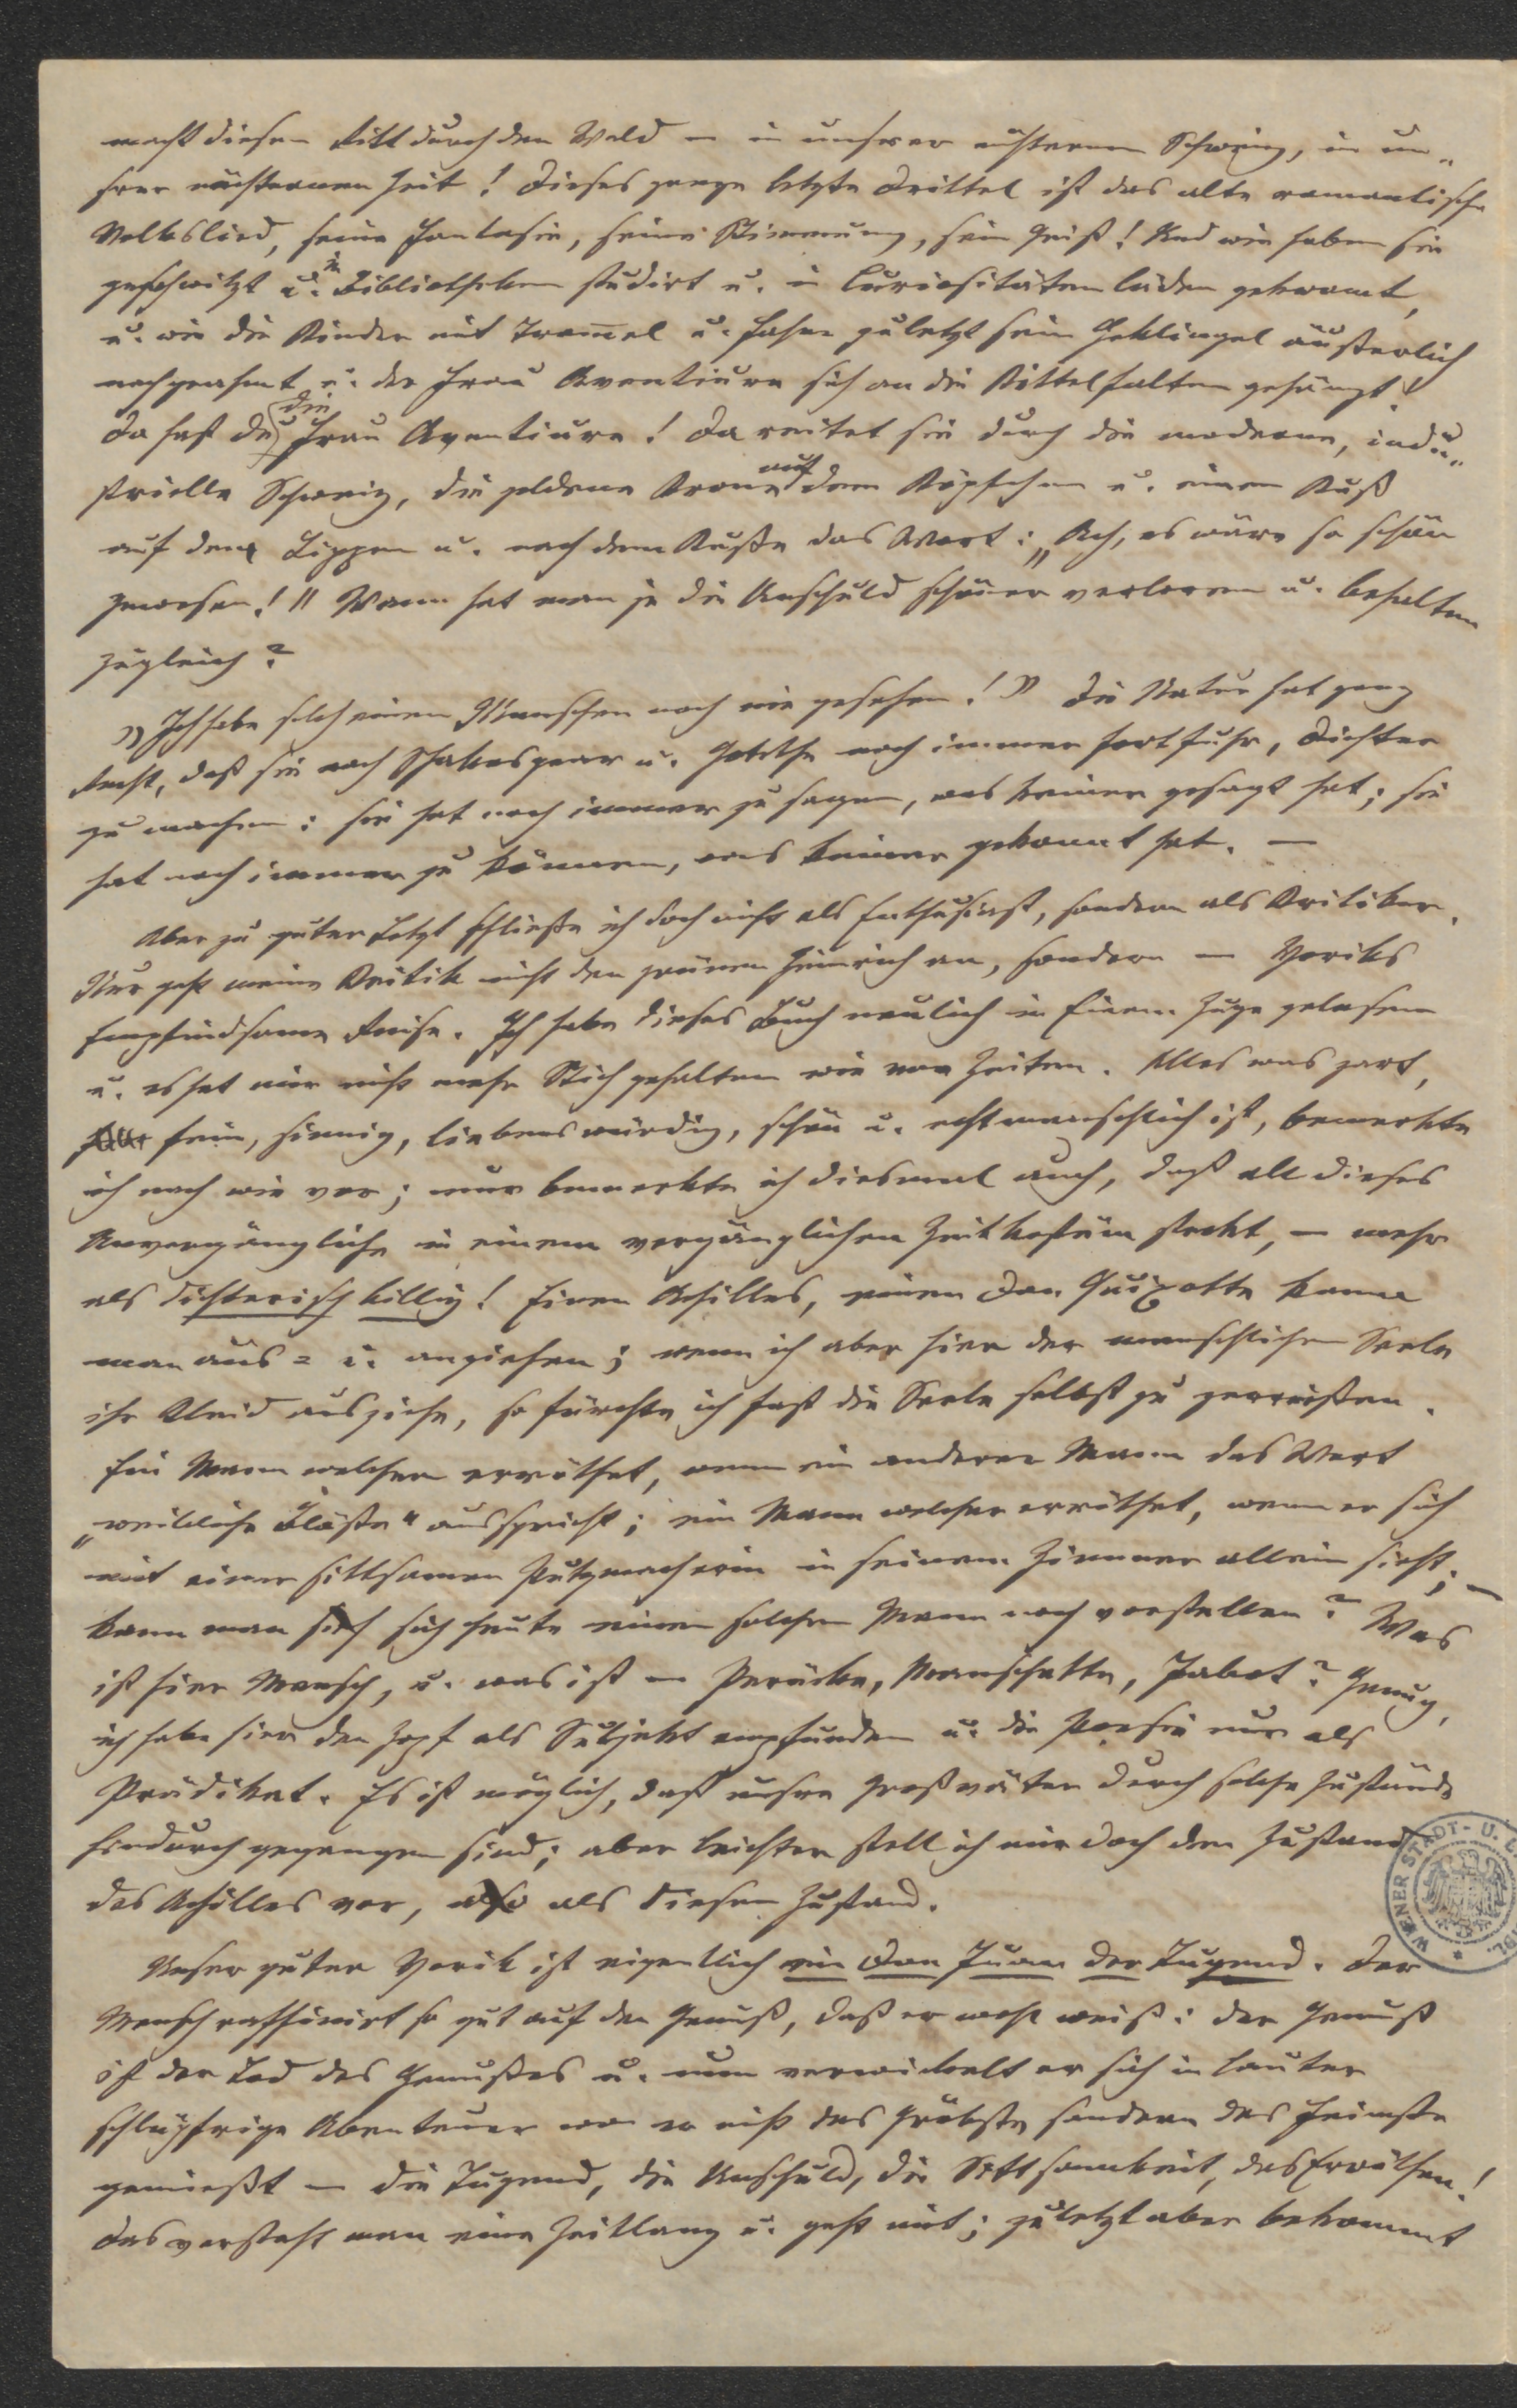 macht diesen Ritt durch den Wald – in unsrer nüchternen Schweiz, in un-
srer nüchternen Zeit! Dieses ganze letzte Drittel ist das alte romantische
Volkslied, seine Fantasie, seine Stimmung, sein Geist! Und wie haben sie
geschwitzt u. in Bibliotheken studirt u. in Curiositätenläden gekramt,
u. wie die Kinder mit Trom̄el u. Fahne zuletzt sein Geklingel äußerlich
nachgeahmt u. der Frau Aventiure sich an die Kittelfalten gehängt!
Da hast du die Frau Aventiure! Da reitet sie durch die moderne, indu-
strielle Schweiz, die goldene Krone auf dem Köpfchen u. einen Kuß
auf den Lippen u. nach dem Kuße das Wort: „Ach, es wäre so schön
gewesen!" Wann hat man je die Unschuld schöner verloren u. behalten
zugleich?
„Ich habe solch einen Menschen noch nie gesehen!" Die Natur hat ganz
Recht, daß sie nach Shakespear u. Goethe noch immer fortfuhr, Dichter
zu machen: sie hat noch immer zu sagen, was keiner gesagt hat; sie
hat noch immer zu können, was keiner gekonnt hat. –
Aber zu guter Letzt schließe ich doch nicht als Enthusiast, sondern als Kritiker.
Nur geht meine Kritik nicht den grünen Heinrich an, sondern – Yoriks
empfindsame Reise. Ich habe dieses Buch neulich in Einem Zuge gelesen
u. es hat mir nicht mehr Stich gehalten wie vor Zeiten. Alles was zart,
fein, sinnig, liebenswürdig, schön u. echt menschlich ist, bemerkte
ich nach wie vor; nur bemerkte ich diesmal auch, daß all dieses
Unvergängliche in einem vergänglichen Zeitkostüm steckt, – mehr
als dichterisch billig! Einen Achilles, einen Don Quixotte kann
man aus- u. anziehen; wenn ich aber hier der menschlichen Seele
ihr Kleid ausziehe, so fürchte ich fast die Seele selbst zu zerreißen.
Ein Mann welcher erröthet, wenn ein anderer Mann das Wort
„weibliche Blöße" ausspricht; ein Mann welcher erröthet, wenn er sich
mit einer sittsamen Putzmacherin in seinem Zimmer allein sieht; –
kann man sich sich heute einen solchen Mann noch vorstellen? Was
ist hier Mensch, u. was ist – Perücke, Manschette, Jabot? Genug,
ich habe hier den Zopf als Subjekt empfunden u. die Poesie nur als
Prädikat. Es ist möglich, daß unsre Großväter durch solche Zustände
hindurch gegangen sind; aber leichter stell ich mir doch den Zustand
des Achilles vor, also als diesen Zustand.
Unser guter Yorik ist eigentlich ein Don Juan der Tugend. Der
Mensch raffinirt so gut auf den Genuß, daß er wohl weiß: der Genuß
ist der Tod des Genußes u. nun verwickelt er sich in lauter
schlüpfrige Abenteuer wo er nicht das Gröbste sondern das Feinste
genießt – die Tugend, die Unschuld, die Sittsamkeit, das Erröthen!
Das versteht man eine Zeitlang u. geht mit; zuletzt aber bekommt
WIENER STADT- U.